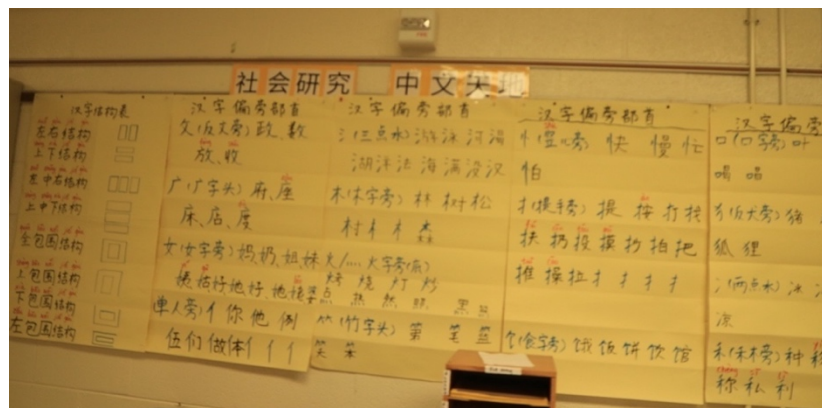 社会研究 中文天地
汉字结构表
左右结构
上下结构
左中右结构
上中下结构
全包围结构
上包围结构
下包围结构
左包围结构
汉字偏旁部首
攵(反文旁)政、数
放、收
广(广字头)府、座
床、店、度
女(女字旁)妈、奶、姐妹
姨姑好她
单人旁)亻你他例
伍们做体亻亻亻
汉字偏旁部首
氵(三点水)游泳河湯
湖沐法海满没汉
木(木字旁)林树松
村
火/灬火字旁(底)
烤烧灯炒
点 热然照 黑
⺮(竹字头)第笔篮
笑 笨
汉字偏旁部首
忄(竖心旁)快慢忙
怕
扌(提手旁)提按打找
扶扔投摸抄拍把
推操拉扌扌扌扌
饣(食字旁)饿饭饼饮馆
汉字偏旁
口(口字旁)叶
唱 晶
犭(反犬旁)猪
狐狸
冫(两点水)冰
凉
禾(禾木旁)种
称私利